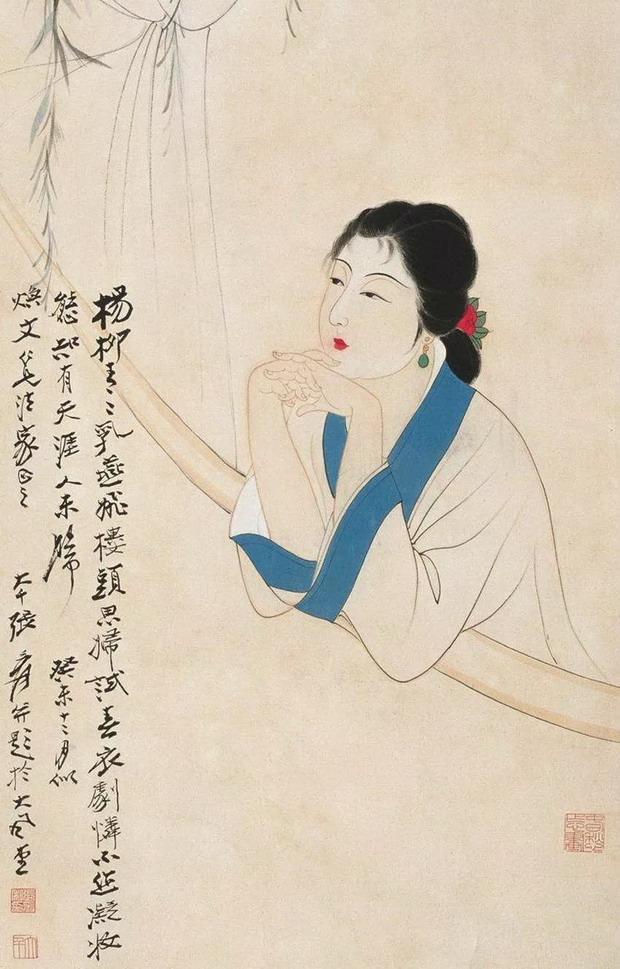 楊柳青〻乳燕飛樓頭思婦試春衣劇憐不凝妝
態有天涯人未歸 癸未十二月似
煥文兄法家正之 大千張爰并題於大風堂